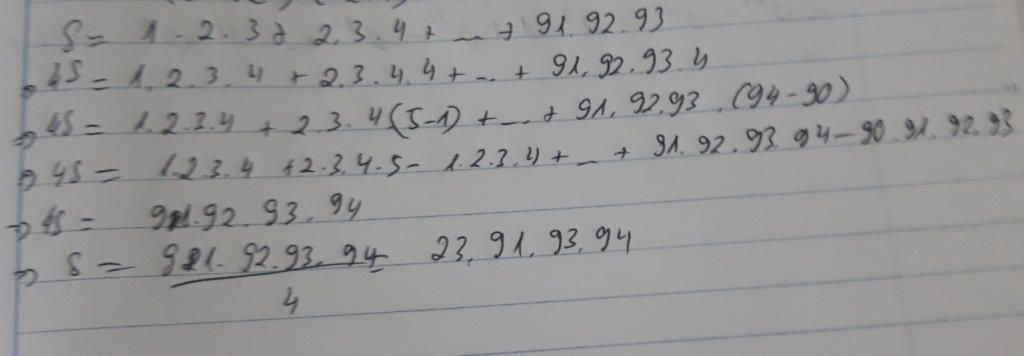 S = 1.2.3+ 2.3.4 + ... + 91.92.93
⇒ 4S = 1.2.3.4 + 2.3.4.4 + ... + 91.92.93.4
⇒ 4S = 1.2.3.4 + 2.3.4(5-1) + ... + 91.92.93.(94-90)
⇒ 4S = 1.2.3.4 + 2.3.4.5 - 1.2.3.4 + ... + 91.92.93.94 - 90.91.92.93
⇒ 4S = 91.92.93.94
⇒ S = 91.92.93.94 23.91.93.94
4